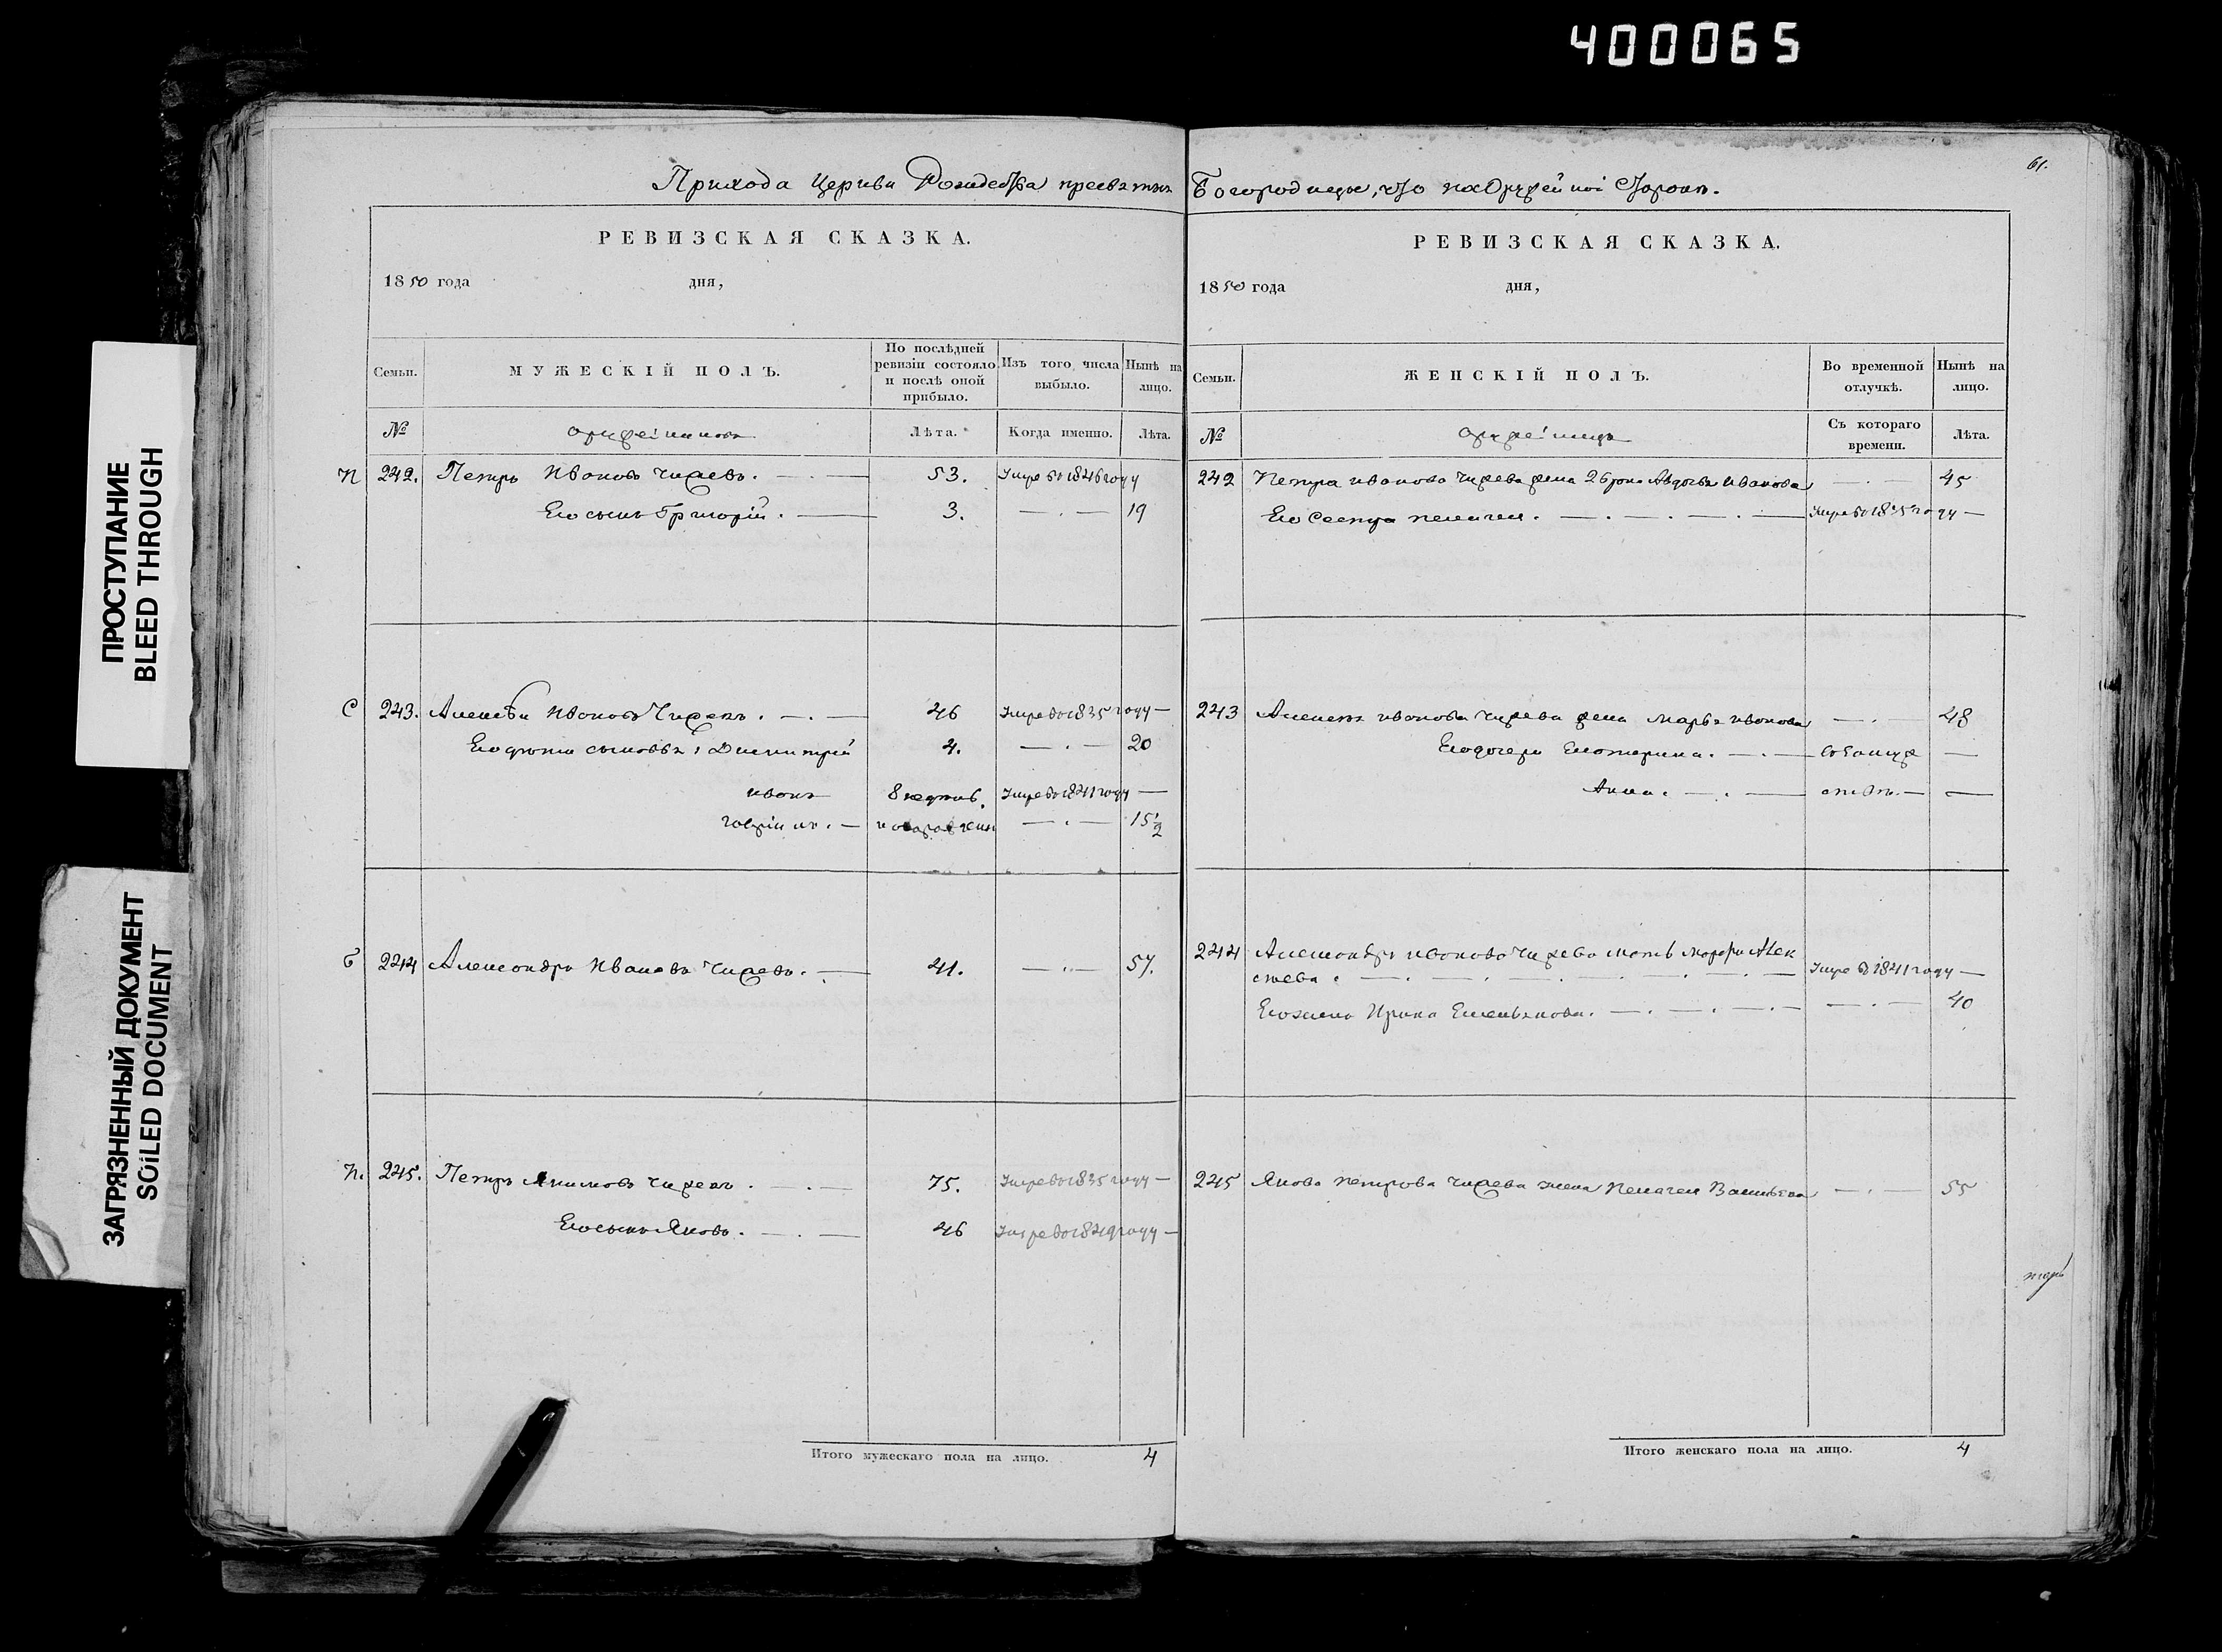 400065
ПРОСТУПАНИЕ
BLEED THROUGH
ЗАГРЯЗНЕННЫЙ ДОКУМЕНТ
SOILED DOCUMENT
61.
Прихода Церкви Рождества пресвятыя Богородицы, что на Оружейной Сторонѣ.
РЕВИЗСКАЯ СКАЗКА.
1850 года дня,
Семьи. МУЖЕСКІЙ ПОЛЪ. По послѣдней ревизіи состояло и послѣ оной прибыло. Изъ того числа выбыло. Нынѣ на лицо.
№ Лѣта. Когда именно. Лѣта.
П 242. Петръ Ивановъ 53. Умре въ 1846 году
Его сынъ Григорій. 3. — . — 19
С 243. Алексѣй Ивановъ 46 Умре въ 1835 году —
Его дѣти сыновья 1 Дмитрій 4. — . — 20
Иванъ 8 недѣль. Умре въ 1841 году —
новорожден — . — 15 1/2
244 Александръ Ивановъ 41. — . — 57.
П. 245. Петръ Якимовъ 75. Умре въ 1835 году —
Его сынъ Яковъ. 46 Умре въ 1849 году —
Итого мужескаго пола на лицо. 4
РЕВИЗСКАЯ СКАЗКА.
1850 года дня,
Семьи. ЖЕНСКІЙ ПОЛЪ. Во временной отлучкѣ. Нынѣ на лицо.
№ Съ котораго времени. Лѣта.
242 Петра Иванова жена 2 брака Авдотья Иванова — . — 45
Его Сестра Пелагея. Умре въ 1835 году —
243 Алексѣя Иванова жена Марья Иванова — . — 48
Его дочери Екатерина. —
Анна. —
244 Александра Иванова мать Марфа Алек
сѣева. Умре въ 1841 году —
Его жена Ирина Емельянова. — . — 40
245 Якова Петрова жена Пелагея Васильева — . — 55
Итого женскаго пола на лицо. 4